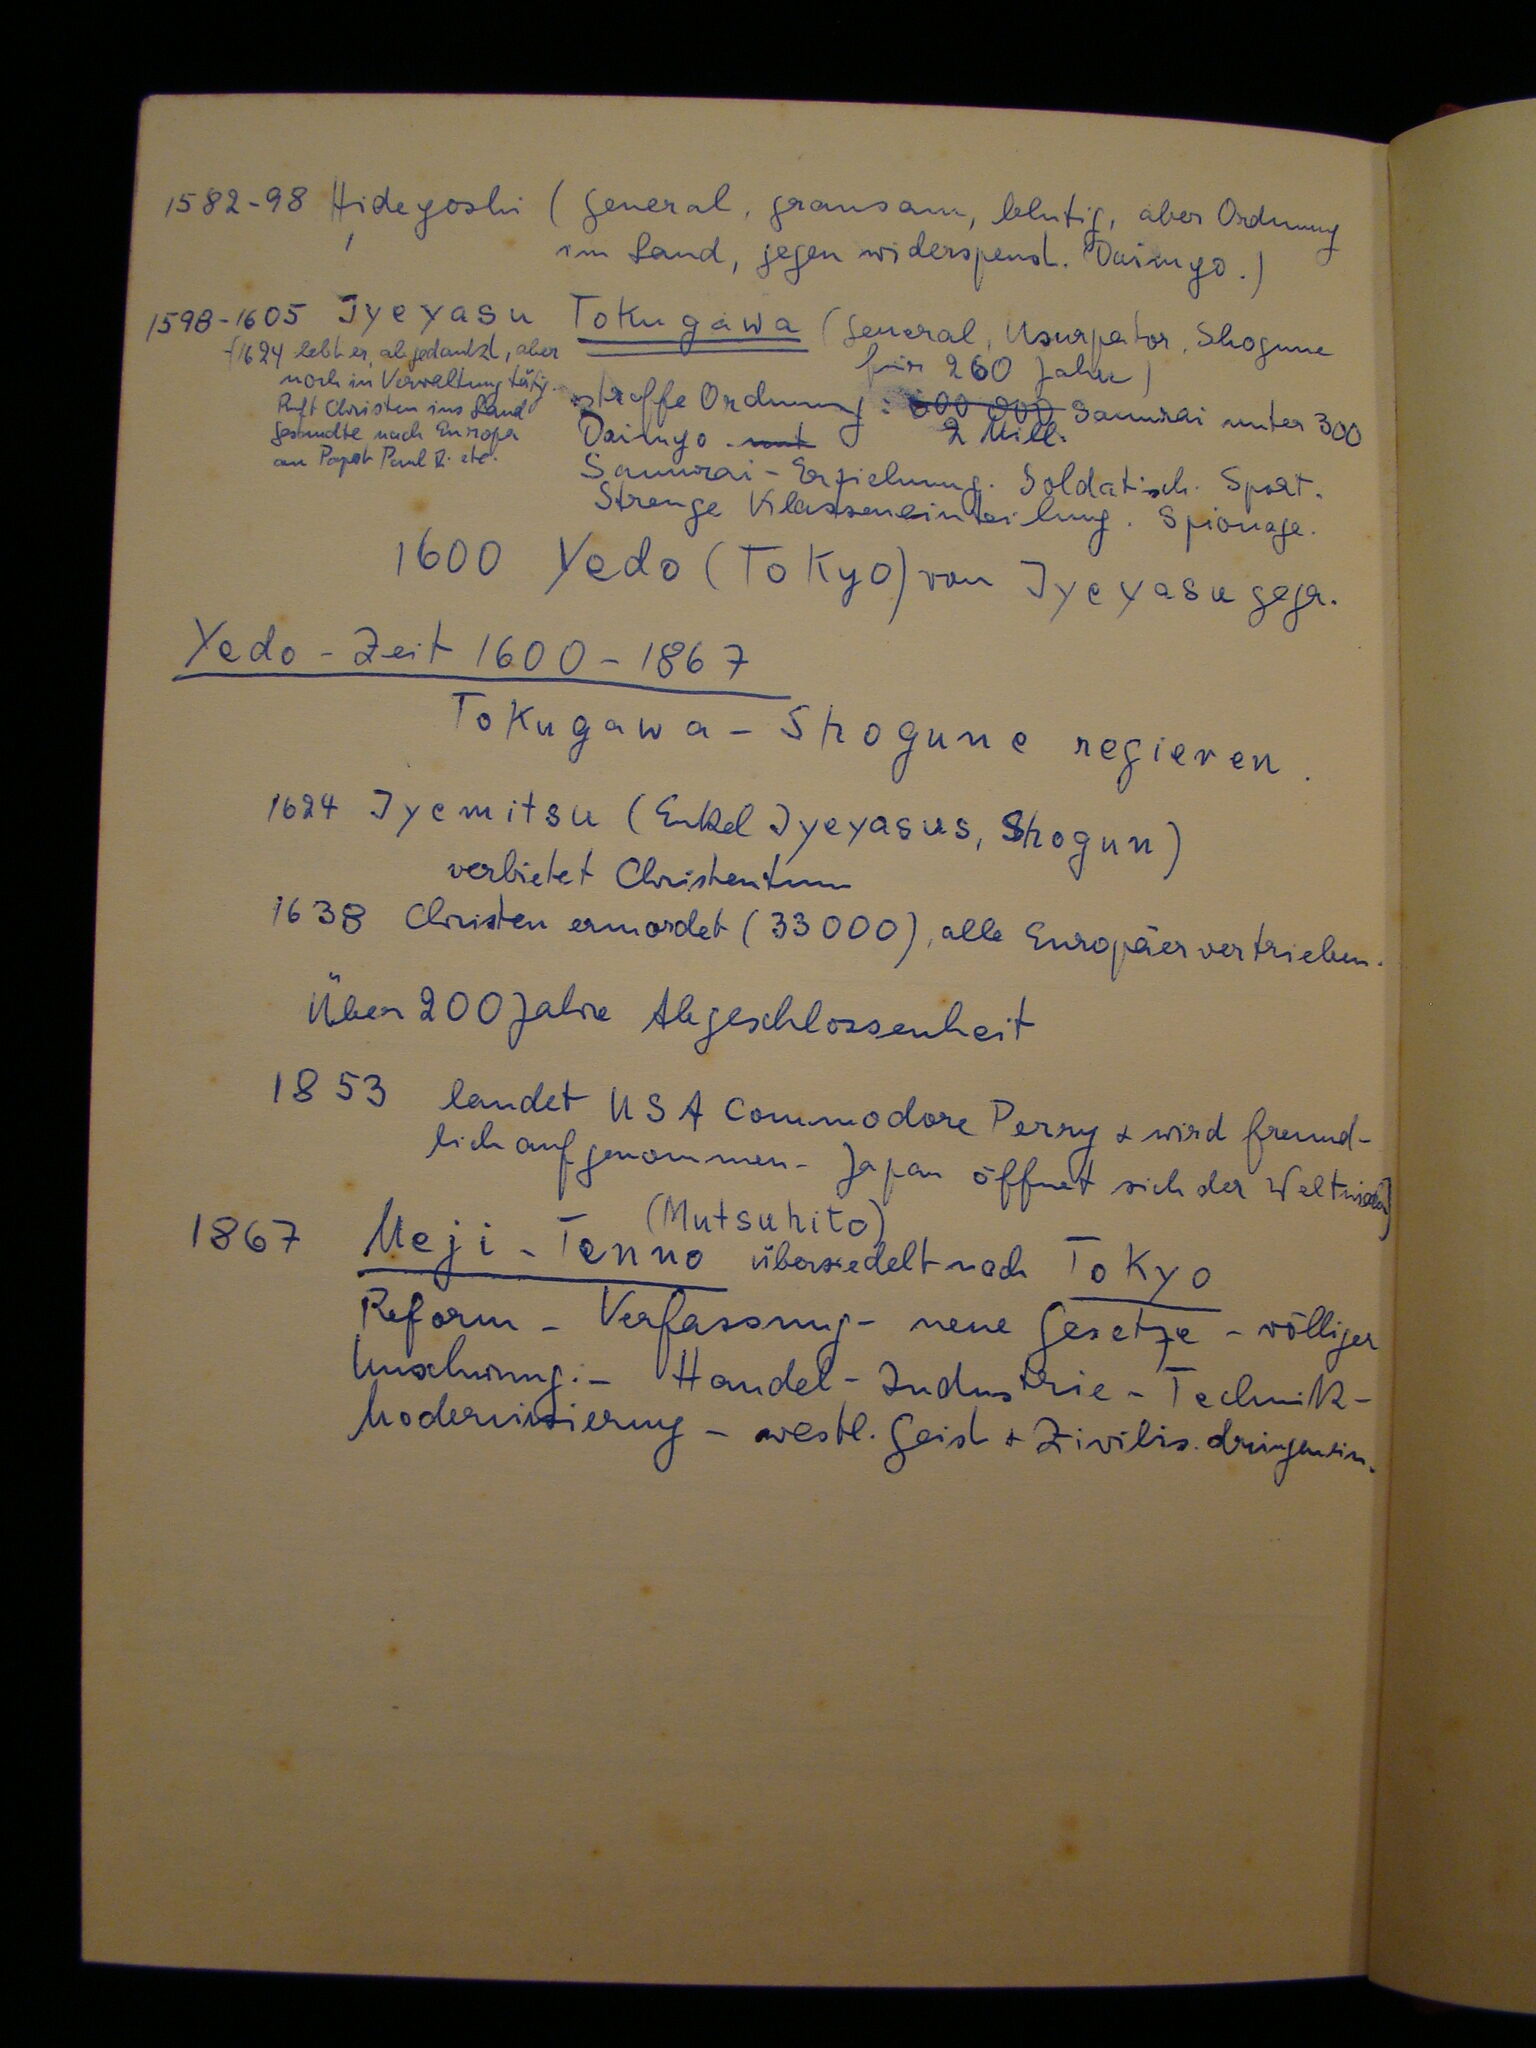 1582-98 Hideyoshi (General, grausam, blutig, aber Ordnung
im Land, gegen widerspenst. Daimyo.)
1598-1605 Iyeyasu Tokugawa (General, Usurpator, Shogune
für 260 Jahre)
-1624 lebt er, abgedankt, aber
noch in Verwaltung tätig.
Ruft Christen ins Land
Gesandte nach Europa
an Papst Paul V. etc.
straffe Ordnung: 2 Mill. Samurai unter 300
Daimyo.
Samurai-Erziehung. Soldatisch. Sport.
Strenge Klasseneinteilung. Spionage.
1600 Yedo (Tokyo) von Iyeyasu gegr.
Yedo-Zeit 1600-1867
Tokugawa-Shogune regieren.
1624 Iyemitsu (Enkel Iyeyasus, Shogun)
verbietet Christentum
1638 Christen ermordet (33000), alle Europäer vertrieben.
Über 200 Jahre Abgeschlossenheit
1853 landet USA Commodore Perry + wird freund-
lich aufgenommen - Japan öffnet sich der Welt wieder)
1867 Meji-Tenno (Mutsuhito) übersiedelt nach Tokyo
Reform - Verfassung - neue Gesetze - völliger
Umschwung. - Handel - Industrie - Technik -
Modernisierung - westl. Geist + Zivilis. dringen ein.